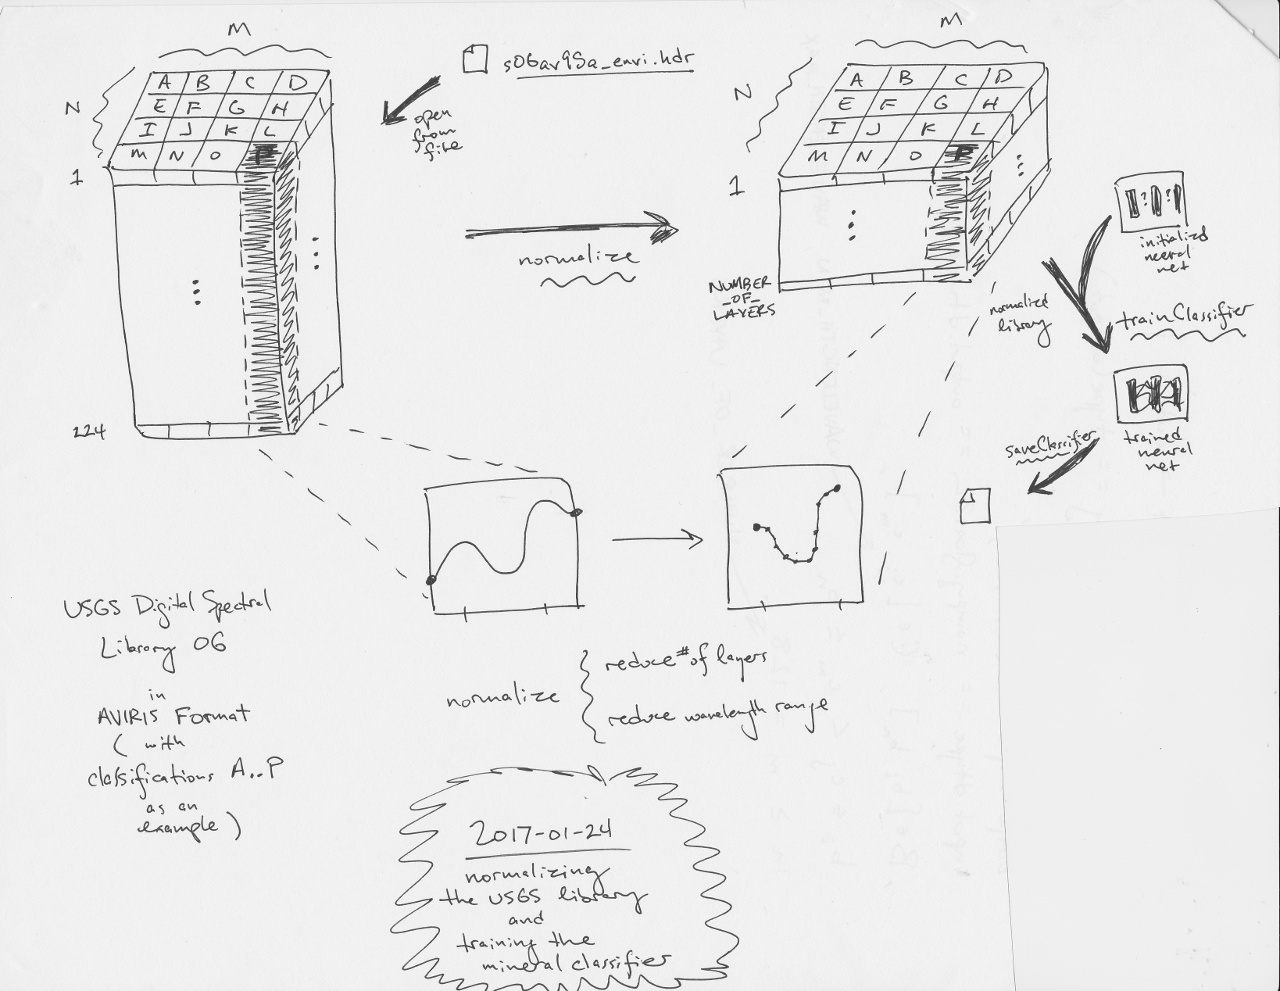 M
N
A B C D
E F G H
I J K L
M N O P
1
224
s06av95a_envi.hdr
open
from
file
normalize
M
N
A B C D
E F G H
I J K L
M N O P
1
NUMBER
_OF_
LAYERS
? ?
initialized
neural
net
normalized
library
trainClassifier
trained
neural
net
saveClassifier
USGS Digital Spectral
Library 06
in
AVIRIS Format
(with
classifications A..P
as an
example)
normalize
reduce # of layers
reduce wavelength range
2017-01-24
normalizing
the USGS library
and
training the
mineral classifier